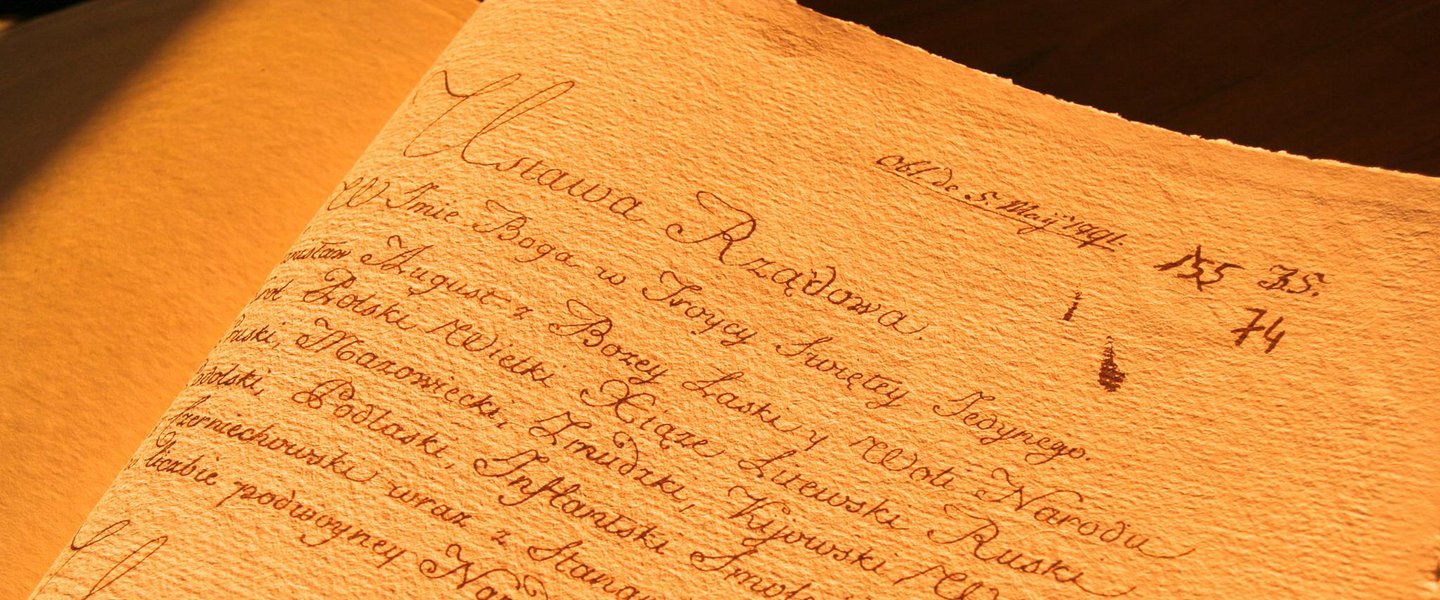 Ustawa Rządowa.
Obl de 5. Maij 1791.
155 JS.
1 74
W Imie Boga w Troycy Swiętey Jedynego.
August z Bozey Łaski y Woli Narodu
Krol Polski Wielki Xiąze Litewski Ruski
Pruski, Mazowiecki, Zmudzki, Kijowski
Podolski, Podlaski, Inflantski
Czerniechowski wraz z
w liczbie podwoyney